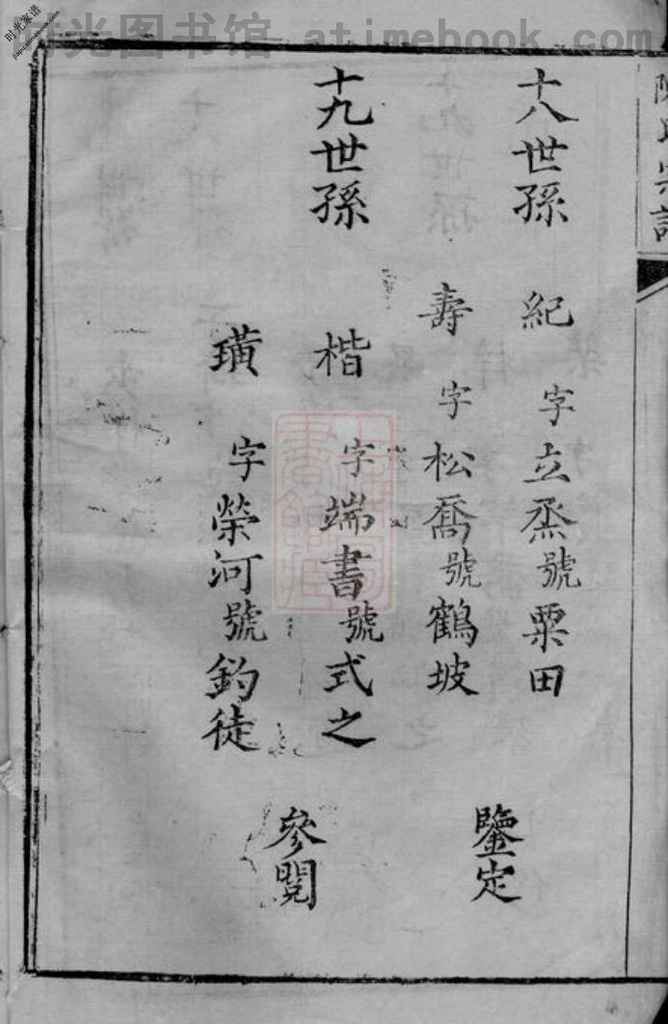 时光图书馆 atimebook.com
时光家谱
十八世孫
紀 字立烝號粟田
壽 字松喬號鶴坡
鑒定
十九世孫
楷 字端書號式之
璜 字榮河號釣徒
參閱